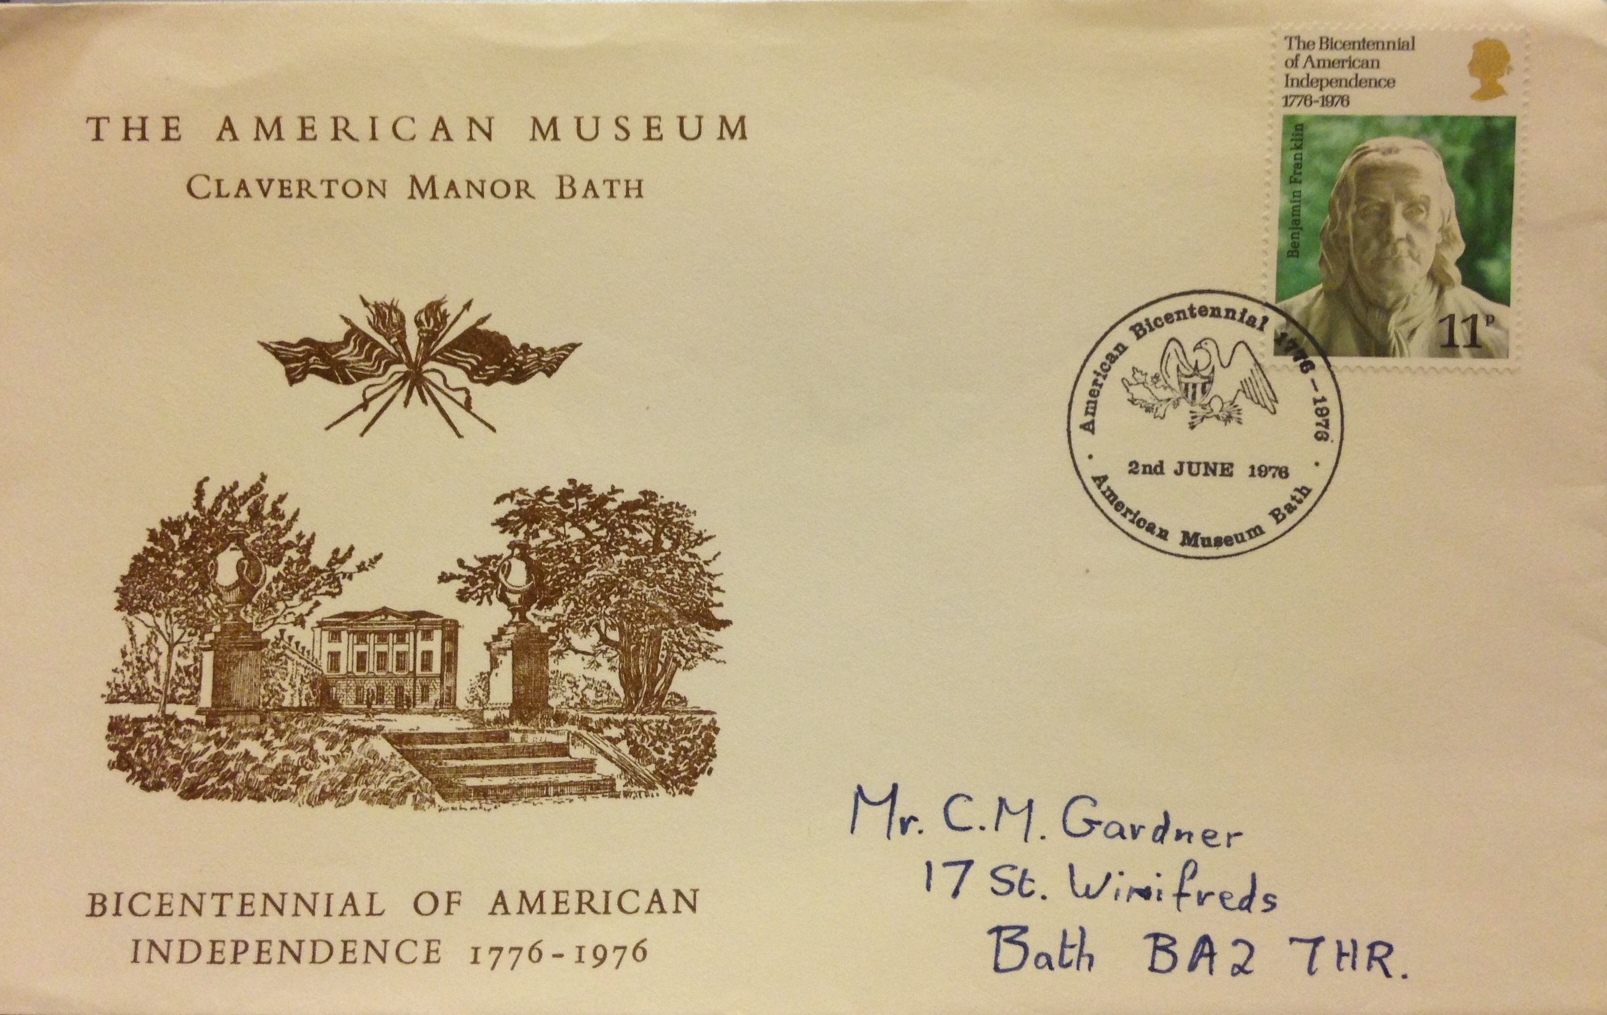 THE AMERICAN MUSEUM
CLAVERTON MANOR BATH
BICENTENNIAL OF AMERICAN
INDEPENDENCE 1776-1976
The Bicentennial
of American
Independence
1776-1976
Benjamin Franklin
11P
American Bicentennial 1776-1976
2nd JUNE 1976
American Museum Bath
Mr. C.M. Gardner
17 St. Winifreds
Bath BA2 7HR.